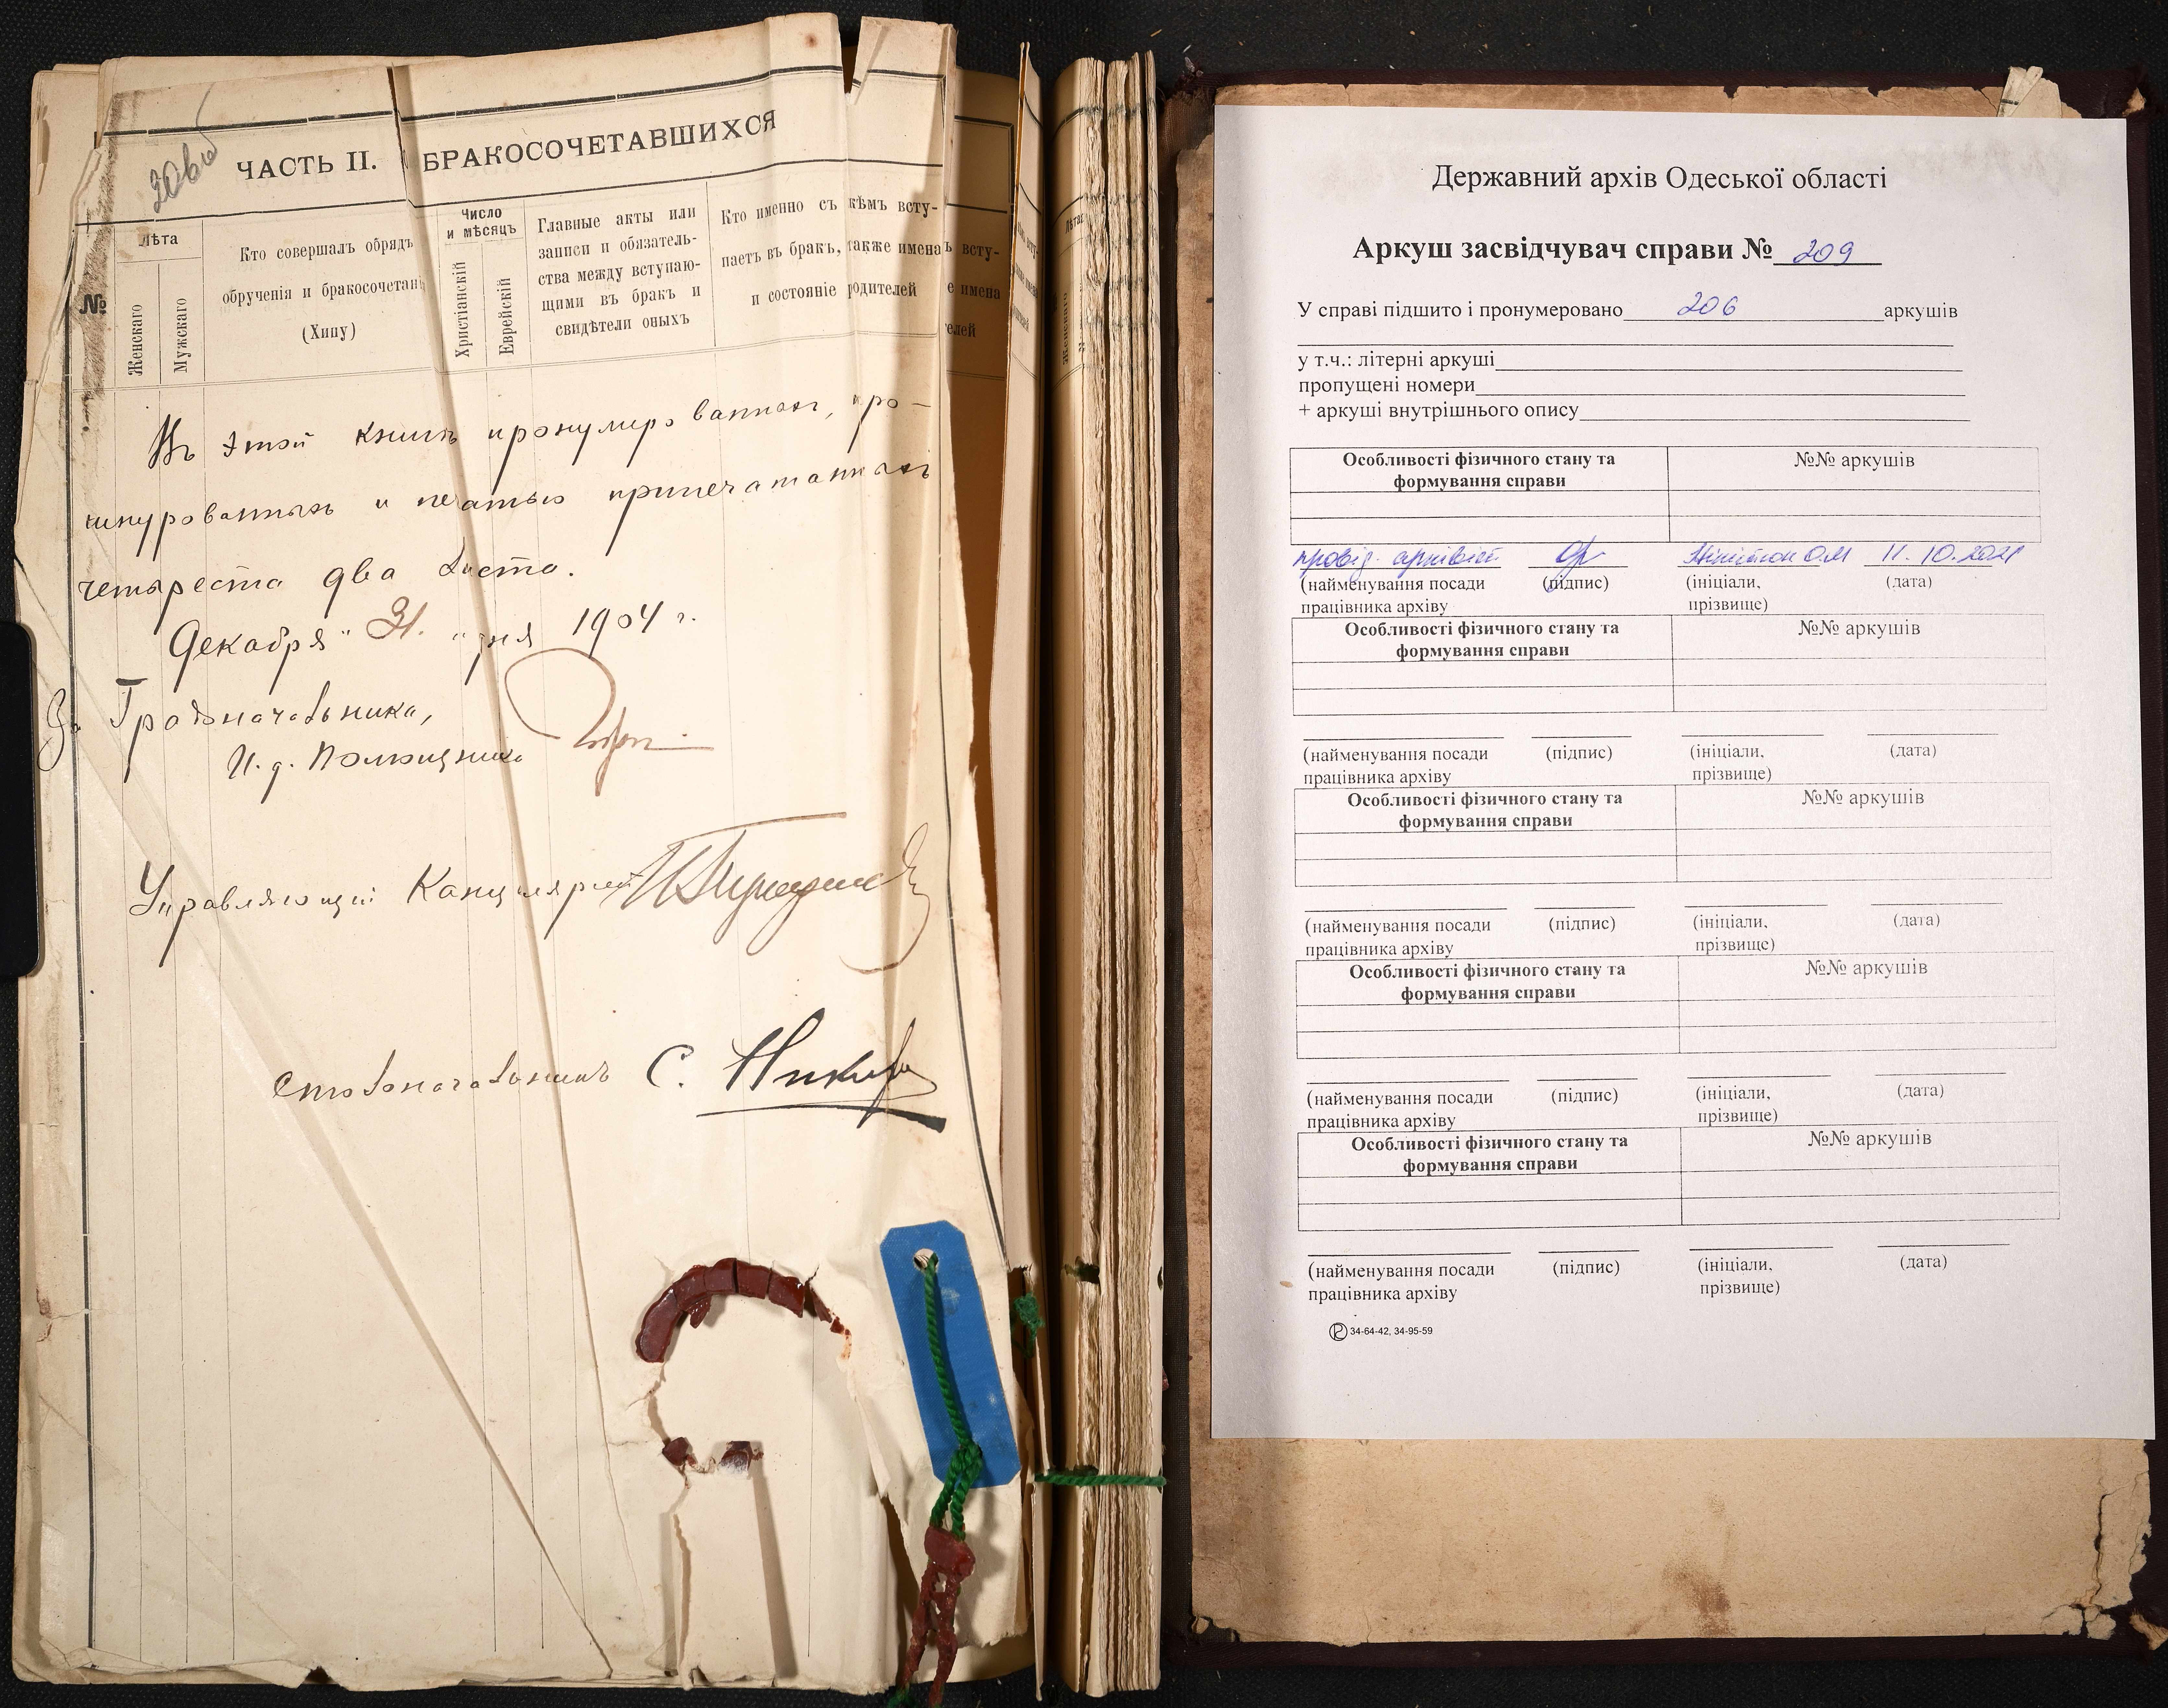 206об
ЧАСТЬ II. БРАКОСОЧЕТАВШИХСЯ
№
Лѣта
Женскаго
Мужскаго
Кто совершалъ обрядъ
обрученія и бракосочетан
(Хипу)
Число
и мѣсяцъ
Христіанскій
Еврейскій
Главные акты или
записи и обязатель-
ства между вступаю-
щими въ бракъ и
свидѣтели оныхъ
Кто именно съ кѣмъ всту-
паетъ въ бракъ, также имена
и состояніе родителей
ъ всту-
е имена
телей
Въ этой книгѣ пронумерованныхъ, про-
шнурованныхъ и печатью припечатанныхъ
четыреста два листа.
Декабря "31." дня 1904 г.
За Градоначальника,
И. д. Помощника
Управляющій Канцеляріей
Столоначальникъ С.
Державний архів Одеської області
Аркуш засвідчувач справи № 209
У справі підшито і пронумеровано 206 аркушів
у т.ч.: літерні аркуші
пропущені номери
+ аркуші внутрішнього опису
Особливості фізичного стану та
формування справи
№№ аркушів
провід. архівіст О.М 11.10.2021
(найменування посади
працівника архіву
(підпис)
(ініціали,
прізвище)
(дата)
Особливості фізичного стану та
формування справи
№№ аркушів
(найменування посади
працівника архіву
(підпис)
(ініціали,
прізвище)
(дата)
Особливості фізичного стану та
формування справи
№№ аркушів
(найменування посади
працівника архіву
(підпис)
(ініціали,
прізвище)
(дата)
Особливості фізичного стану та
формування справи
№№ аркушів
(найменування посади
працівника архіву
(підпис)
(ініціали,
прізвище)
(дата)
Особливості фізичного стану та
формування справи
№№ аркушів
(найменування посади
працівника архіву
(підпис)
(ініціали,
прізвище)
(дата)
34-64-42, 34-95-59